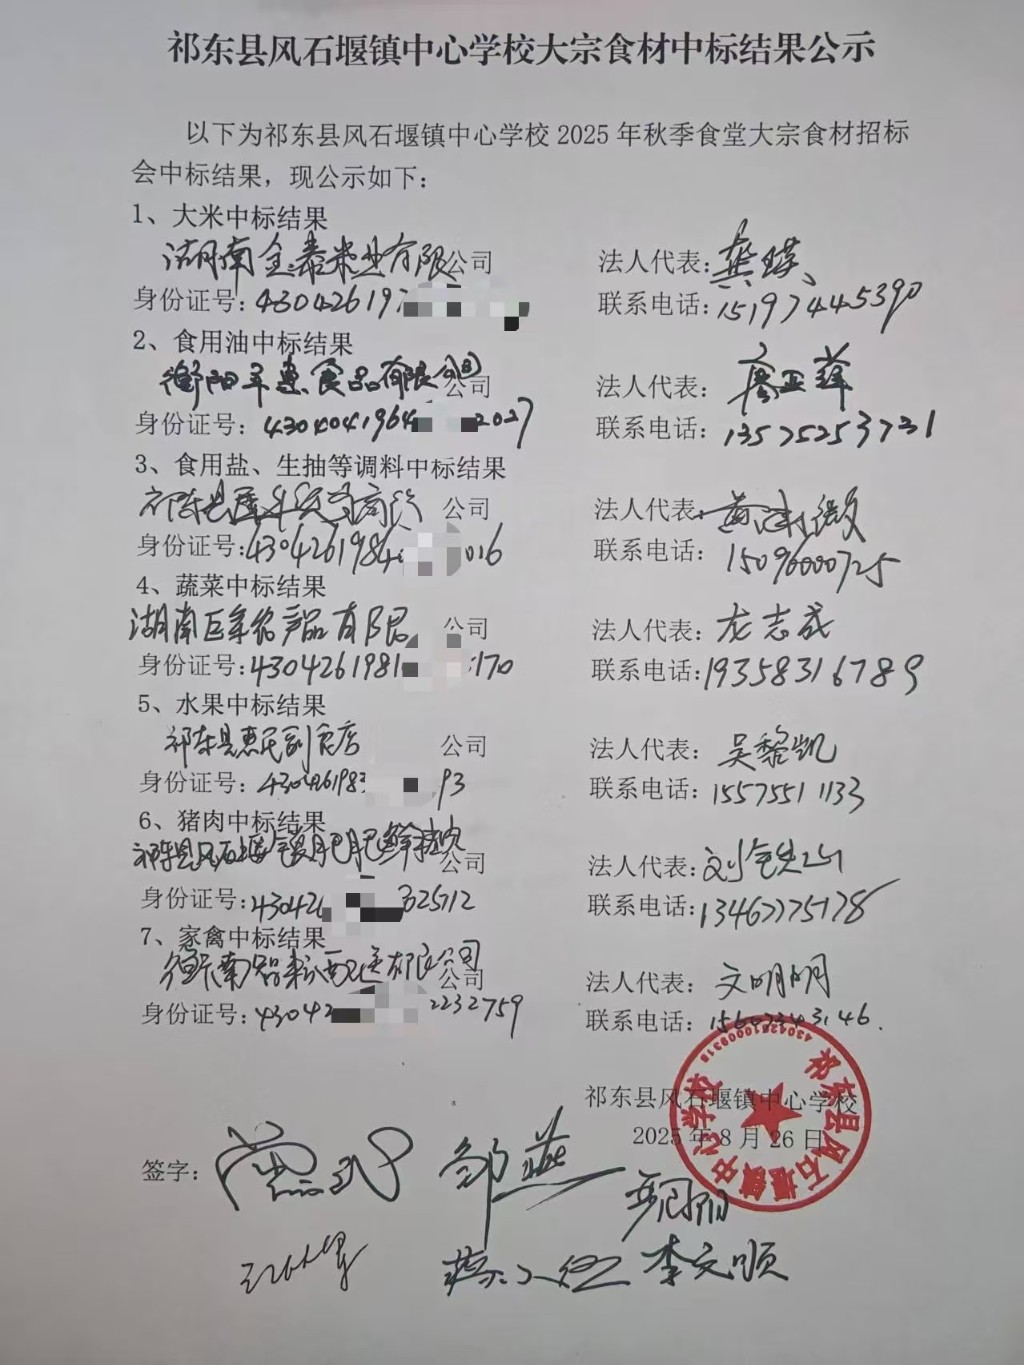 祁东县风石堰镇中心学校大宗食材中标结果公示
以下为祁东县风石堰镇中心学校 2025 年秋季食堂大宗食材招标
会中标结果，现公示如下：
1、大米中标结果
湖南金泰米业有限公司 法人代表：龚瑛
身份证号：43042619 联系电话：15197445390
2、食用油中标结果
衡阳 惠食品有限公司 公司 法人代表：廖亚辉
身份证号：4304041964 2027 联系电话：13575253731
3、食用盐、生抽等调料中标结果
祁东县 商行 公司 法人代表：黄 微
身份证号：4304261984 016 联系电话：15096000725
4、蔬菜中标结果
湖南巨年农产品有限 公司 法人代表：龙志成
身份证号：4304261981 170 联系电话：19358316789
5、水果中标结果
祁东县惠民副食店 公司 法人代表：吴黎凯
身份证号：430426198 93 联系电话：15575511133
6、猪肉中标结果
祁东县风石堰镇 公司 法人代表：刘铁山
身份证号：43042 2512 联系电话：13467775178
7、家禽中标结果
公司 法人代表：文明明
身份证号：43042 2232759 联系电话：
祁东县风石堰镇中心学校
2025 年 8 月 26 日
祁东县风石堰镇中心学校
签字： 邹燕
李文顺